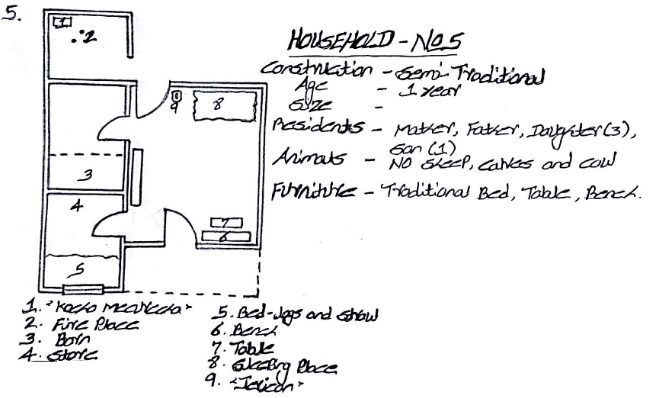 5.
HOUSEHOLD - No.5
Construction - Semi-Traditional
Age - 1 year
Size -
Residents - Mother, Father, Daughter (3),
Son (1)
Animals - No sheep, calves and cow
Furniture - Traditional Bed, Table, Bench.
1
2
9
8
3
4
7
6
5
1.
2. Fire Place
3. Barn
4. Store
5. Bed-logs and straw
6. Bench
7. Table
8. Sleeping Place
9. "Jerican"